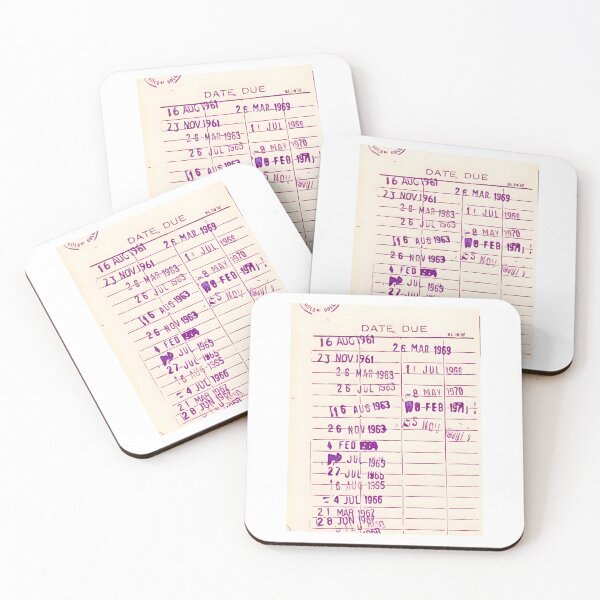 DATE DUE
16 AUG 1961
26 MAR 1969
23 NOV 1961
28 MAR 1963
11 JUL 1966
26 JUL 1963
-8 MAY 1970
16 AUG
8 FEB 1971
DATE DUE
16 AUG 1961
26 MAR 1969
23 NOV 1961
28 MAR 1963
11 JUL 1966
26 JUL 1963
-8 MAY 1970
16 AUG 1963
8 FEB 1971
26 NOV 1963
NOV
4 FEB 1964
JUL
27 JUL
DATE DUE
16 AUG 1961
26 MAR 1969
23 NOV 1961
28 MAR 1963
11 JUL 1966
26 JUL 1963
-8 MAY 1970
16 AUG 1963
8 FEB 1971
26 NOV 1963
NOV
4 FEB 1964
JUL 1965
27 JUL 1965
16 AUG 1965
-4 JUL 1966
21 MAR 1967
28 JUN 1967
DATE DUE
16 AUG 1961
26 MAR 1969
23 NOV 1961
28 MAR 1963
11 JUL 1966
26 JUL 1963
-8 MAY 1970
16 AUG 1963
8 FEB 1971
26 NOV 1963
NOV
4 FEB 1964
JUL 1965
27 JUL 1965
16 AUG 1965
-4 JUL 1966
21 MAR 1967
28 JUN 1967